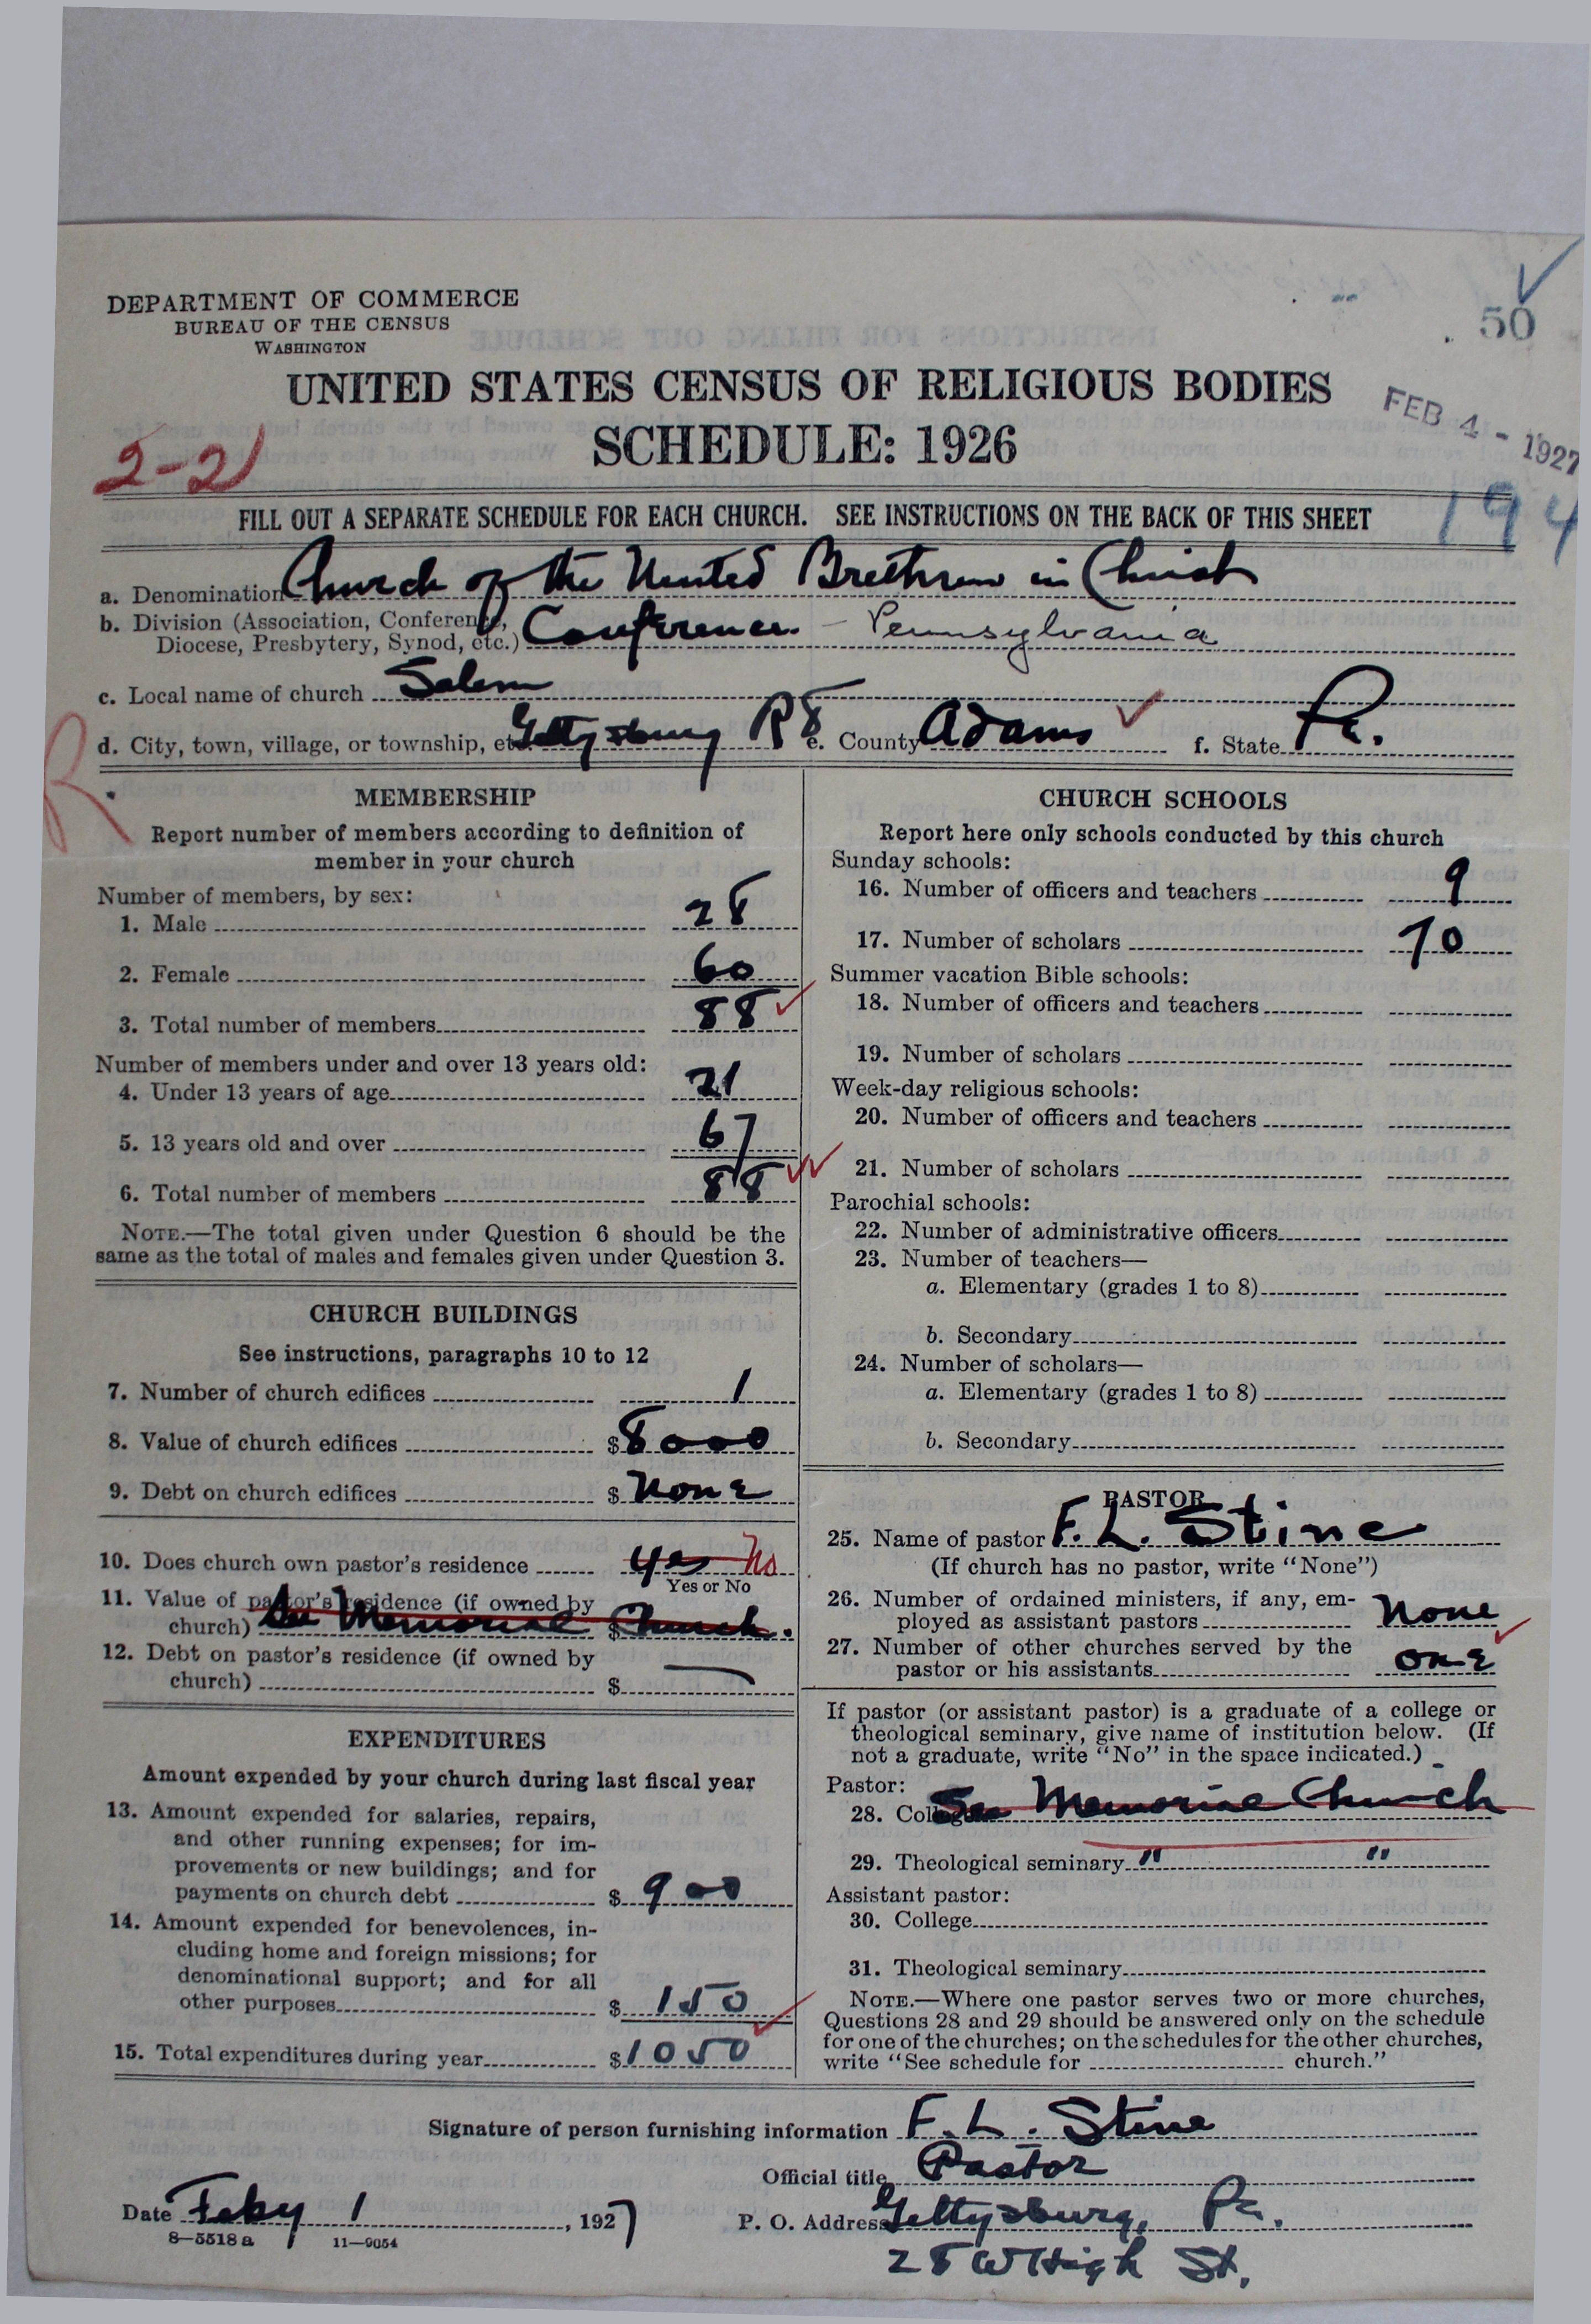 DEPARTMENT OF COMMERCE
BUREAU OF THE CENSUS
WASHINGTON
50
UNITED STATES CENSUS OF RELIGIOUS BODIES
FEB 4 - 1927
SCHEDULE: 1926
2-21
194
FILL OUT A SEPARATE SCHEDULE FOR EACH CHURCH. SEE INSTRUCTIONS ON THE BACK OF THIS SHEET
a. Denomination Church of the United Brethren in Christ
b. Division (Association, Conference,
Diocese, Presbytery, Synod, etc.) Conference - Pennsylvania
c. Local name of church Salem
d. City, town, village, or township, etc. Gettysburg R 8 e. County Adams f. State Pa.
R
MEMBERSHIP
Report number of members according to definition of
member in your church
Number of members, by sex:
1. Male 28
2. Female 60
3. Total number of members 88
Number of members under and over 13 years old:
4. Under 13 years of age 21
5. 13 years old and over 67
6. Total number of members 88
NOTE.—The total given under Question 6 should be the
same as the total of males and females given under Question 3.
CHURCH BUILDINGS
See instructions, paragraphs 10 to 12
7. Number of church edifices 1
8. Value of church edifices $ 8000
9. Debt on church edifices $ None
10. Does church own pastor's residence yes No
Yes or No
11. Value of pastor's residence (if owned by
church) See Memorial $ Church.
12. Debt on pastor's residence (if owned by
church) $ —
EXPENDITURES
Amount expended by your church during last fiscal year
13. Amount expended for salaries, repairs,
and other running expenses; for im-
provements or new buildings; and for
payments on church debt $ 900
14. Amount expended for benevolences, in-
cluding home and foreign missions; for
denominational support; and for all
other purposes $ 150
15. Total expenditures during year $ 1050
CHURCH SCHOOLS
Report here only schools conducted by this church
Sunday schools:
16. Number of officers and teachers 9
17. Number of scholars 70
Summer vacation Bible schools:
18. Number of officers and teachers
19. Number of scholars
Week-day religious schools:
20. Number of officers and teachers
21. Number of scholars
Parochial schools:
22. Number of administrative officers
23. Number of teachers—
a. Elementary (grades 1 to 8)
b. Secondary
24. Number of scholars—
a. Elementary (grades 1 to 8)
b. Secondary
PASTOR
25. Name of pastor F. L. Stine
(If church has no pastor, write "None")
26. Number of ordained ministers, if any, em-
ployed as assistant pastors None
27. Number of other churches served by the
pastor or his assistants one
If pastor (or assistant pastor) is a graduate of a college or
theological seminary, give name of institution below. (If
not a graduate, write "No" in the space indicated.)
Pastor:
28. College See Memorial Church
29. Theological seminary " "
Assistant pastor:
30. College
31. Theological seminary
NOTE.—Where one pastor serves two or more churches,
Questions 28 and 29 should be answered only on the schedule
for one of the churches; on the schedules for the other churches,
write "See schedule for church."
Signature of person furnishing information F. L. Stine
Official title Pastor
Date Feby 1, 1927
P. O. Address Gettysburg, Pa.
28 W High St.
8—5518 a 11—9054